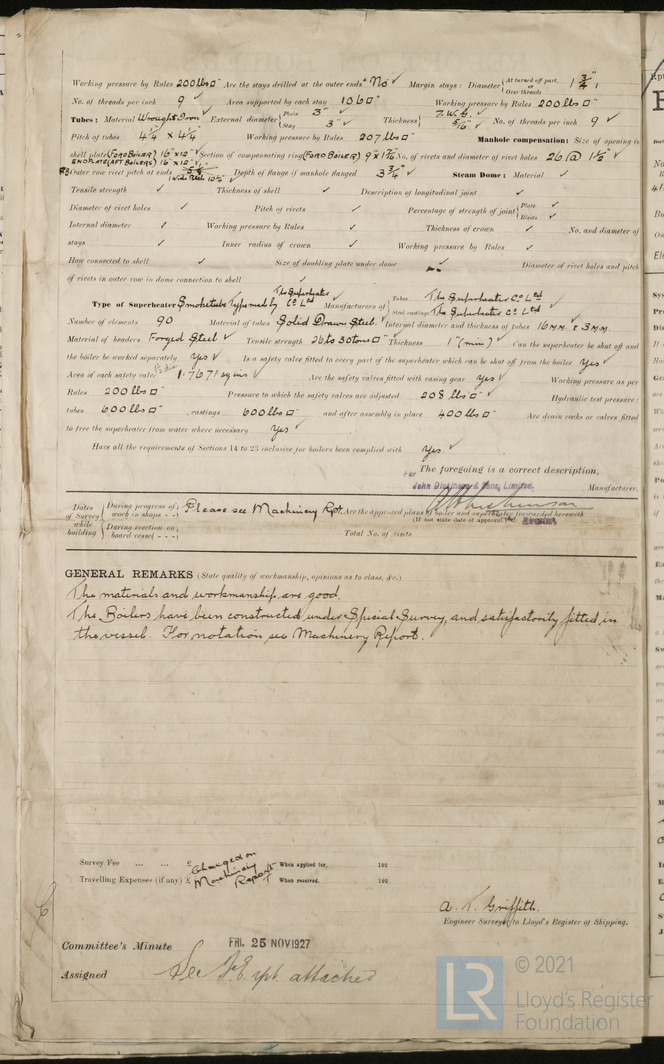 Working pressure by Rules 200 lbs □" Are the stays drilled at the outer ends No ✓ Margin stays: Diameter {At turned off part, or Over threads 1 3/4"
No. of threads per inch 9 ✓ Area supported by each stay 106 □" Working pressure by Rules 200 lbs □"
Tubes: Material Wrought Iron ✓ External diameter {Plain 3" Stay 3" ✓ Thickness {7. W.G. ✓ 5/16" ✓ No. of threads per inch 9 ✓
Pitch of tubes 4 1/4" x 4 1/4" Working pressure by Rules 207 lbs □" Manhole compensation: Size of opening in
shell plate (FORD BOILER) 16"x12" ✓ Section of compensating ring (FORD BOILER) 9"x1 7/16" No. of rivets and diameter of rivet holes 26 @ 1 1/2" ✓
END PLATE (AFT BOILERS) 16"x12"
Outer row rivet pitch at ends Depth of flange if manhole flanged 3 3/4" ✓ Steam Dome: Material ✓
Tensile strength ✓ Thickness of shell ✓ Description of longitudinal joint ✓
Diameter of rivet holes ✓ Pitch of rivets ✓ Percentage of strength of joint {Plate ✓ Rivets ✓
Internal diameter ✓ Working pressure by Rules ✓ Thickness of crown ✓ No. and diameter of
stays ✓ Inner radius of crown ✓ Working pressure by Rules ✓
How connected to shell ✓ Size of doubling plate under dome ✓ Diameter of rivet holes and pitch
of rivets in outer row in dome connection to shell ✓
Type of Superheater Smoketube Type made by The Superheater Co Ltd Manufacturers of {Tubes The Superheater Co. Ltd Steel castings The Superheater Co. Ltd
Number of elements 90 Material of tubes Solid Drawn Steel. Internal diameter and thickness of tubes 16 M.M. & 3 M.M.
Material of headers Forged Steel ✓ Tensile strength 26 to 30 tons □" ✓ Thickness 1" (min) ✓ Can the superheater be shut off and
the boiler be worked separately yes ✓ Is a safety valve fitted to every part of the superheater which can be shut off from the boiler yes ✓
Area of each safety valve 1.7671 sq ins ✓ Are the safety valves fitted with easing gear yes ✓ Working pressure as per
Rules 200 lbs □" Pressure to which the safety valves are adjusted 208 lbs □" ✓ Hydraulic test pressure:
tubes 600 lbs □" ✓ castings 600 lbs □" ✓ and after assembly in place 400 lbs □" ✓ Are drain cocks or valves fitted
to free the superheater from water where necessary yes ✓
Have all the requirements of Sections 14 to 23 inclusive for boilers been complied with yes. ✓
The foregoing is a correct description,
For John Dickinson & Sons, Limited, Manufacturer.
Dates of Survey while building {During progress of work in shops - - Please see Machinery Rpt. Are the approved plans of boiler and superheater forwarded herewith
(If not state date of approval.)
During erection on board vessel - - - Total No. of visits
GENERAL REMARKS (State quality of workmanship, opinions as to class, &c.)
The materials and workmanship are good.
The Boilers have been constructed under Special Survey, and satisfactorily fitted in
the vessel. For notation see Machinery Report.
Survey Fee ... ... £ Charged on When applied for, 192
Travelling Expenses (if any) £ Machinery Report When received, 192
A. T. Griffith.
Engineer Surveyor to Lloyd's Register of Shipping.
Committee's Minute FRI. 25 NOV 1927
Assigned See F.E. rpt. attached
LR © 2021
Lloyd's Register
Foundation